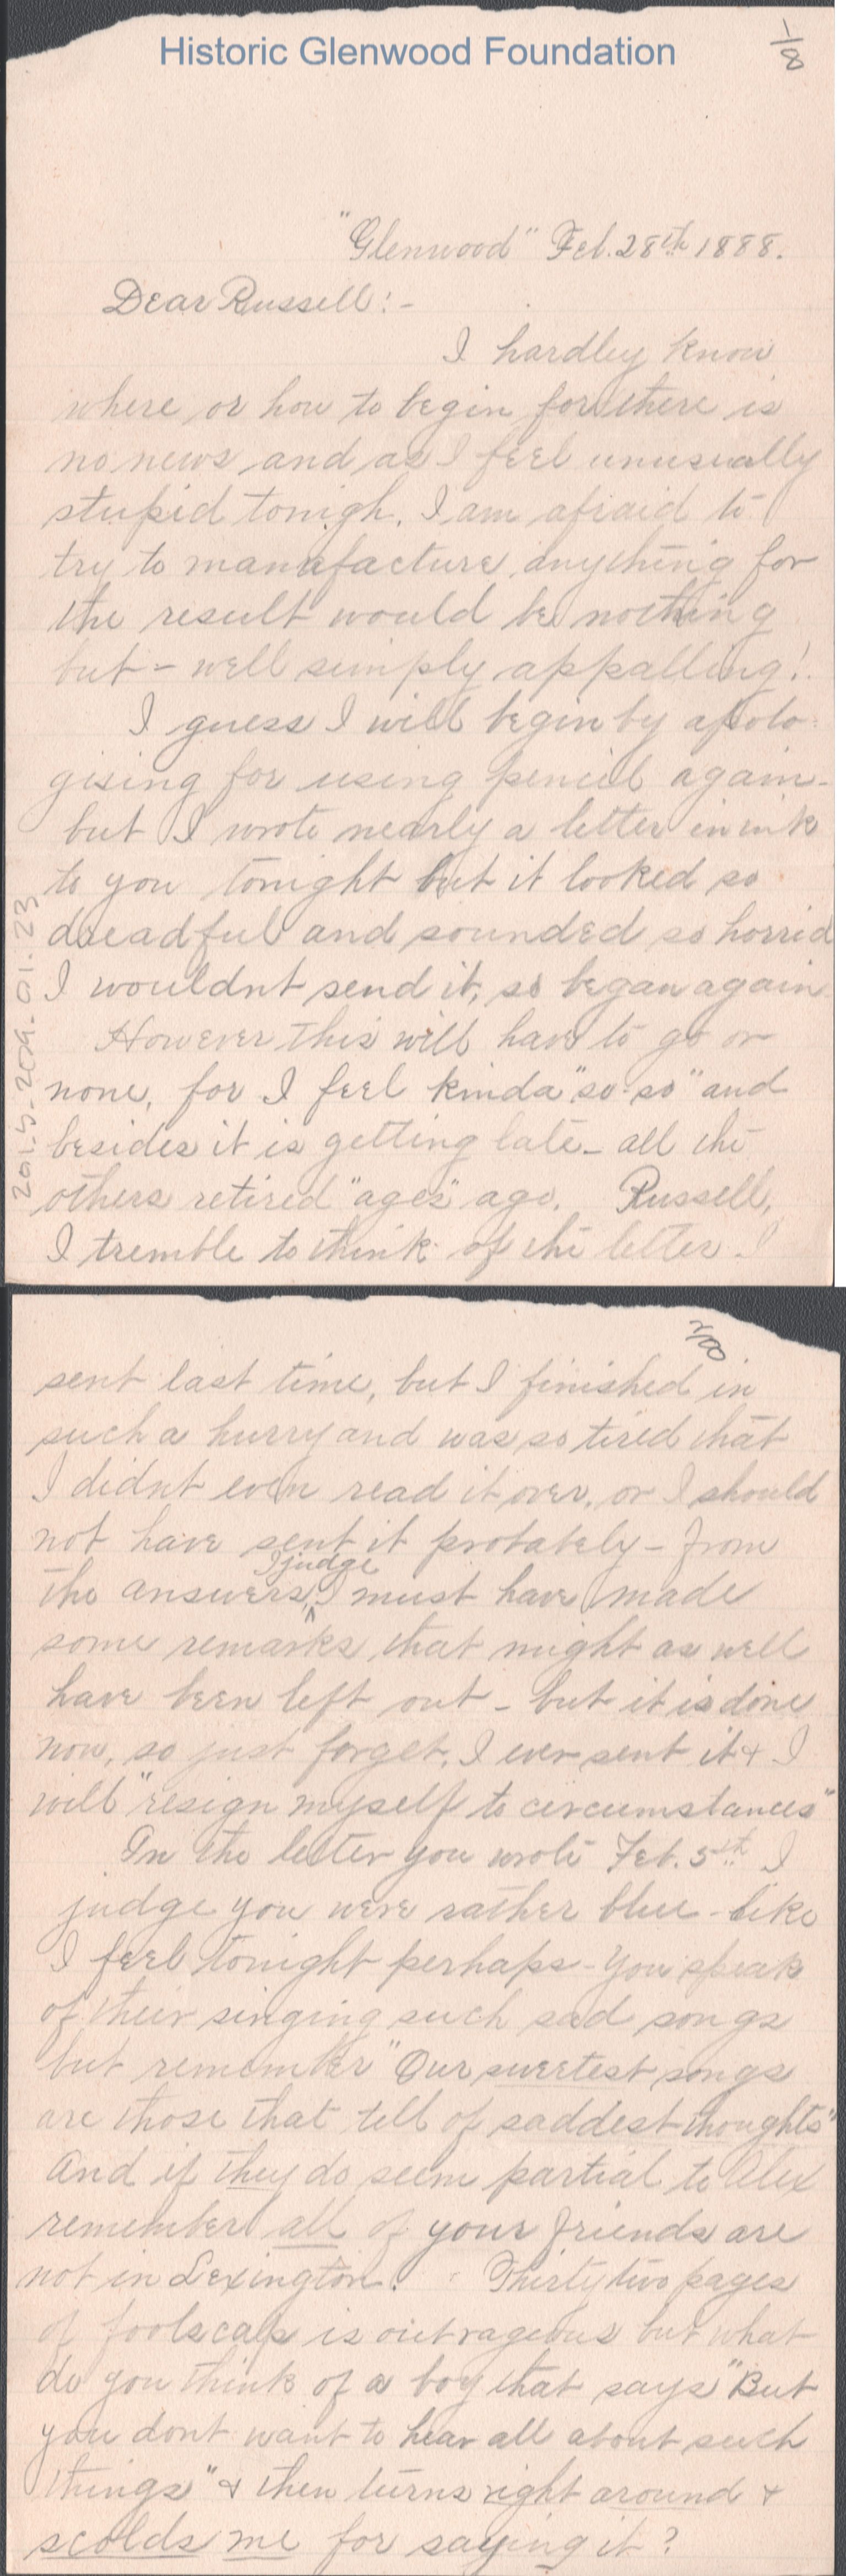 Historic Glenwood Foundation
1/8
"Glenwood" Feb. 28th 1888.
Dear Russell:-
I hardley know
where or how to begin for there is
no news and as I feel unusually
stupid tonigh. I am afraid to
try to manufacture anything for
the result would be nothing
but - well simply appalling!
I guess I will begin by apolo-
gising for using pencil again -
but I wrote nearly a letter in ink
to you tonight but it looked so
dreadful and sounded so horrid
I wouldnt send it, so began again
However this will have to go or
none, for I feel kinda "so-so" and
besides it is getting late - all the
others retired "ages" ago. Russell,
I tremble to think of the letter I
2015.209.01.23
2/8
sent last time, but I finished in
such a hurry and was so tired that
I didnt even read it over, or I should
not have sent it probately - from
I judge
the answers, ^ I must have made
some remarks that might as well
have been left out - but it is done
now, so just forget, I ever sent it & I
will "resign myself to circumstances"
In the letter you wrote Feb. 5th I
judge you were rather blue - like
I feel tonight perhaps - You speak
of their singing such sad songs
but remember "Our sweetest songs
are those that tell of saddest thoughts"
And if they do seem partial to Alex
remember all of your friends are
not in Lexington! Thirty two pages
of foolscap is outrageous but what
do you think of a boy that says "But
you dont want to hear all about such
things" & then turns right around &
scolds me for saying it?